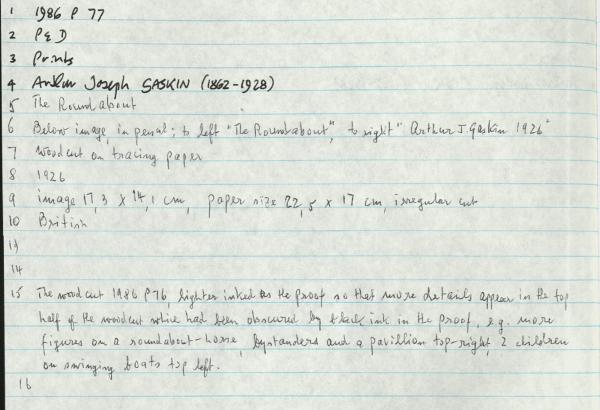 1 1986 P 77
2 P & D
3 Prints
4 Arthur Joseph GASKIN (1862-1928)
5 The Roundabout
6 Below image, in pencil; to left "The Roundabout", to right "Arthur J. Gaskin 1926"
7 woodcut on tracing paper
8 1926
9 image 17,3 x 14,1 cm, paper size 22,5 x 17 cm, irregular cut
10 British
13
14
15 The woodcut 1986 P 76, lighter inked the proof so that more details appear in the top
half of the woodcut which had been obscured by black ink in the proof, e.g. more
figures on a roundabout-horse, bystanders and a pavillion top-right, 2 children
on swinging boats top left.
16